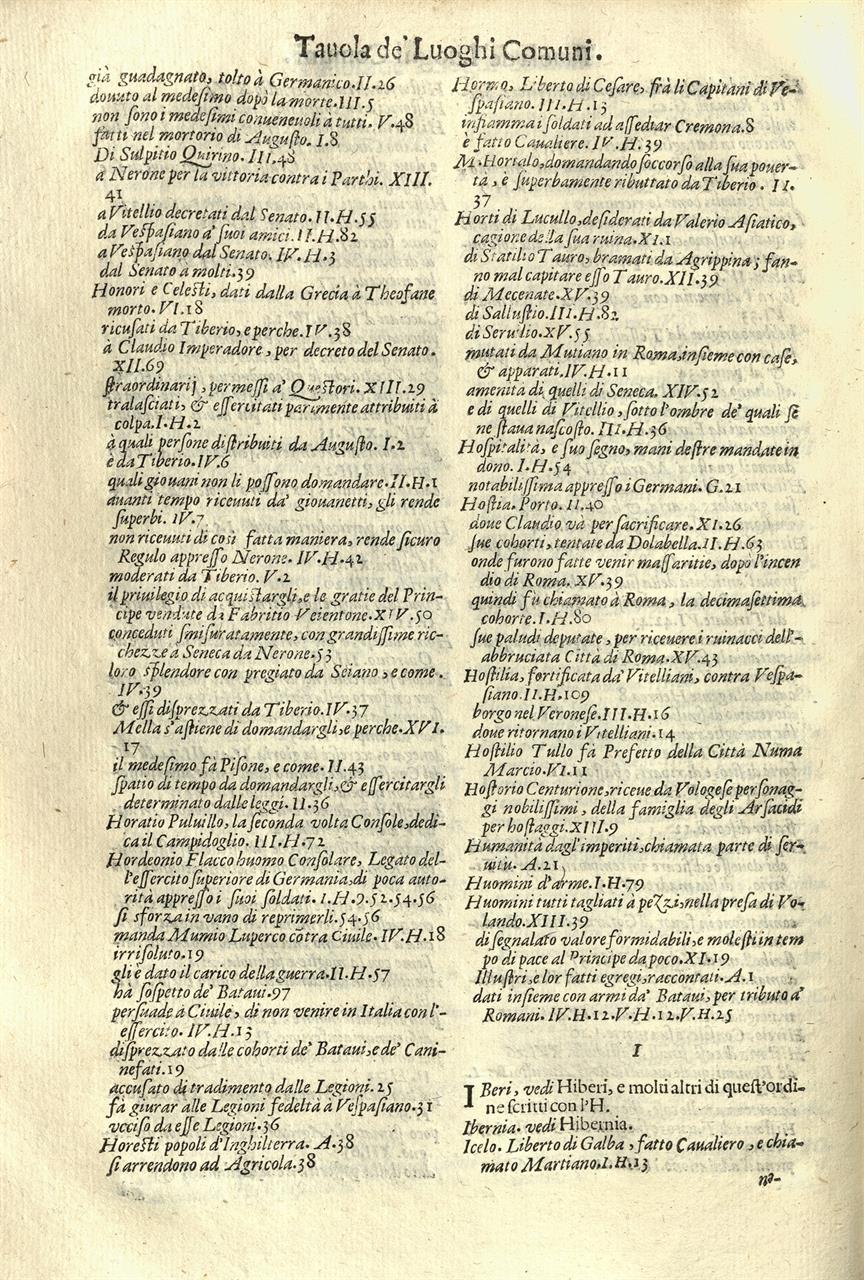 Tauola de' Luoghi Comuni.
già guadagnato, tolto à Germanico.II.26
douuto al medesimo dopò la morte.III.5
non sono i medesimi conueneuoli à tutti. V.48
fatti nel mortorio di Augusto. I.8
Di Sulpitio Quirino. III.48
à Nerone per la vittoria contra i Parthi. XIII.
41
a Vitellio decretati dal Senato.II.H.55
da Vespasiano a' suoi amici.II.H.82
a Vespasiano dal Senato. IV.H.3
dal Senato à molti.39
Honori e Celesti, dati dalla Grecia à Theofane
morto.VI.18
ricusati da Tiberio, e perche.IV.38
à Claudio Imperadore, per decreto del Senato.
XII.69
straordinarij, permessi a' Questori. XIII.29
tralasciati, & essercitati parimente attribuiti à
colpa.I.H.2
à quali persone distribuiti da Augusto. I.2
è da Tiberio.IV.6
quali giouani non li possono domandare.II.H.1
auanti tempo riceuuti da' giouanetti, gli rende
superbi. IV.7
non riceuuti di così fatta maniera, rende sicuro
Regulo appresso Nerone. IV.H.42
moderati da Tiberio. V.2
il priuilegio di acquistargli, e le gratie del Prin-
cipe vendute da Fabritio Veientone.XIV.50
conceduti smisuratamente, con grandissime ric-
chezze à Seneca da Nerone.53
loro splendore con pregiato da Seiano, e come.
IV.39
& essi disprezzati da Tiberio.IV.37
Mella s'astiene di domandargli, e perche.XVI.
17
il medesimo fà Pisone, e come. II.43
spatio di tempo da domandargli, & essercitargli
determinato dalle leggi. II.36
Horatio Puluillo, la seconda volta Console, dedi-
ca il Campidoglio. III.H.72
Hordeonio Flacco huomo Consolare, Legato del-
l'essercito superiore di Germania, di poca auto-
rità appresso i suoi soldati. I.H.9.52.54.56
si sforza in vano di reprimerli.54.56
manda Mumio Luperco cōtra Ciuile. IV.H.18
irrisoluto.19
gli è dato il carico della guerra.II.H.57
hà sospetto de' Bataui.97
persuade à Ciuile, di non venire in Italia con l'-
essercito. IV.H.13
disprezzato dalle cohorti de' Bataui, e de' Cani-
nefati.19
accusato di tradimento dalle Legioni.25
fà giurar alle Legioni fedeltà à Vespasiano.31
vcciso da esse Legioni.36
Horesti popoli d'Inghilterra. A.38
si arrendono ad Agricola.38
Hormo, Liberto di Cesare, frà li Capitani di Ve-
spasiano. III.H.13
infiamma i soldati ad assediar Cremona.8
è fatto Caualiere. IV.H.39
M. Hortalo, domandando soccorso alla sua pouer-
tà, è superbamente ributtato da Tiberio. II.
37
Horti di Lucullo, desiderati da Valerio Asiatico,
cagione della sua ruina.XI.1
di Statilio Tauro, bramati da Agrippina; fan-
no mal capitare esso Tauro.XII.39
di Mecenate.XV.39
di Sallustio.III.H.82
di Seruilio.XV.55
mutati da Mutiano in Roma, insieme con case,
& apparati.IV.H.11
amenità di quelli di Seneca. XIV.52
e di quelli di Vitellio, sotto l'ombre de' quali se
ne staua nascosto. III.H.36
Hospitalità, e suo segno, mani destre mandate in
dono. I.H.54
notabilissima appresso i Germani. G.21
Hostia. Porto. II.40
doue Claudio và per sacrificare. XI.26
sue cohorti, tentate da Dolabella.II.H.63
onde furono fatte venir massaritie, dopò l'incen
dio di Roma. XV.39
quindi fù chiamato à Roma, la decimasettima
cohorte.I.H.80
sue paludi deputate, per riceuere i ruinacci dell'-
abbruciata Città di Roma.XV.43
Hostilia, fortificata da' Vitelliani, contra Vespa-
siano.II.H.109
borgo nel Veronese.III.H.16
doue ritornano i Vitelliani.14
Hostilio Tullo fà Prefetto della Città Numa
Marcio.VI.11
Hostorio Centurione, riceue da Vologese personag-
gi nobilissimi, della famiglia degli Arsacidi
per hostaggi.XIII.9
Humanità dagl'imperiti, chiamata parte di ser-
uitù. A.21
Huomini d'arme.I.H.79
Huomini tutti tagliati à pezzi, nella presa di Vo-
lando.XIII.39
di segnalato valore formidabili, e molesti in tem
po di pace al Principe da poco.XI.19
Illustri, e lor fatti egregi, raccontati. A.1
dati insieme con armi da' Bataui, per tributo a'
Romani. IV.H.12.V.H.12.V.H.25
I
IBeri, vedi Hiberi, e molti altri di quest'ordi-
ne scritti con l'H.
Ibernia. vedi Hibernia.
Icelo. Liberto di Galba, fatto Caualiero, e chia-
mato Martiano.I.H.13